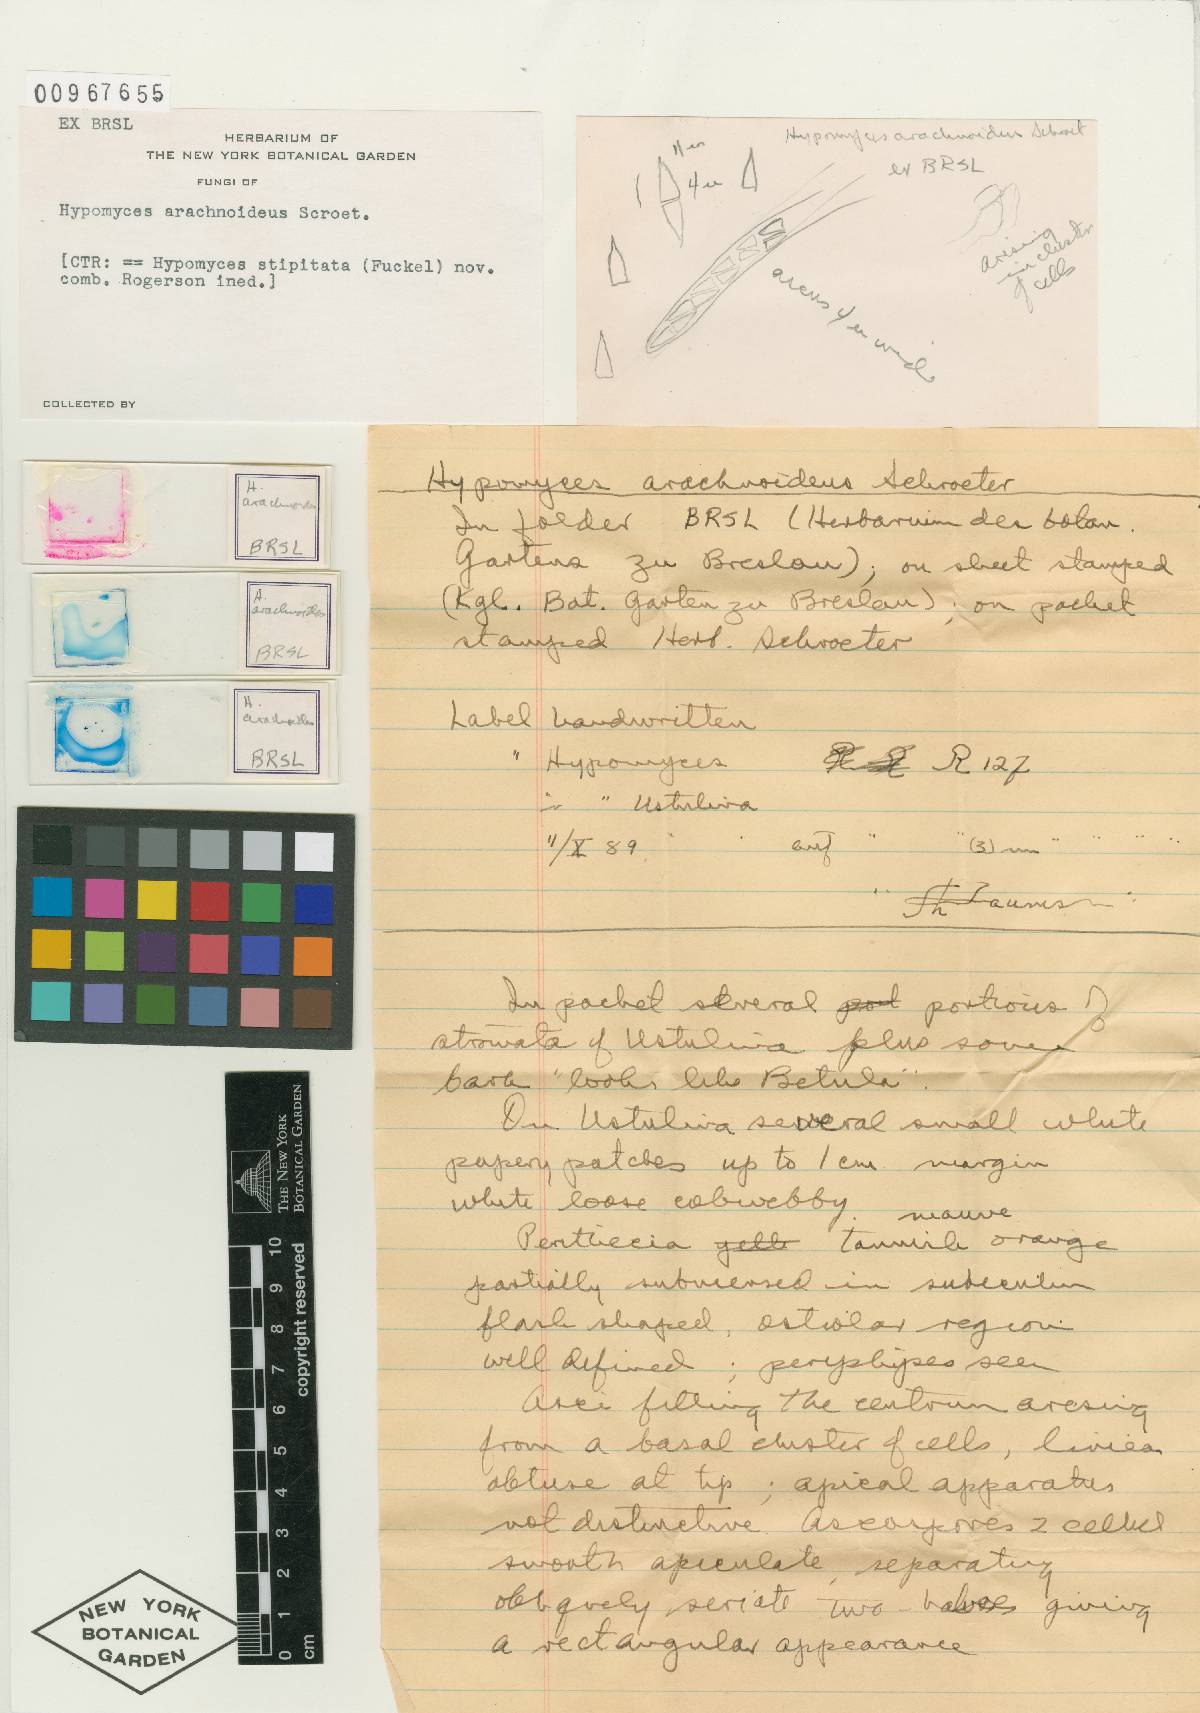 00967655
EX BRSL
HERBARIUM OF
THE NEW YORK BOTANICAL GARDEN
FUNGI OF
Hypomyces arachnoideus Scroet.
[CTR: == Hypomyces stipitata (Fuckel) nov.
comb. Rogerson ined.]
COLLECTED BY
Hypomyces arachnoideus Schroet
ex BRSL
4 u
arising
in cluster
of cells
ascus 4 u wide
H.
arachnoideus
BRSL
H.
arachnoideus
BRSL
H.
arachnoideus
BRSL
Hypomyces arachnoideus Schroeter
In folder BRSL (Herbarium des botan.
Gartens zu Breslau); on sheet stamped
(Kgl. Bot. Garten zu Breslau); on packet
stamped Herb. Schroeter
Label handwritten
" Hypomyces R 127
" " Ustulina
"/X 89 " " auf " "(3) " " " "
In packet several port portions of
stromata of Ustulina plus some
bark "looks like Betula".
On Ustulina several small white
papery patches up to 1 cm margin
white loose cobwebby.
mauve
Perithecia yello tannish orange
partially submersed in subiculum
flask shaped, ostiolar region
well defined; periphyses seen
Asci filling the centrum arising
from a basal cluster of cells, linear
obtuse at tip; apical apparatus
not distinctive. Ascospores 2 celled
smooth apiculate, separating
obliquely seriate two halves giving
a rectangular appearance
THE NEW YORK
BOTANICAL GARDEN
copyright reserved
10
9
8
7
6
5
4
3
2
1
0
cm
NEW YORK
BOTANICAL
GARDEN